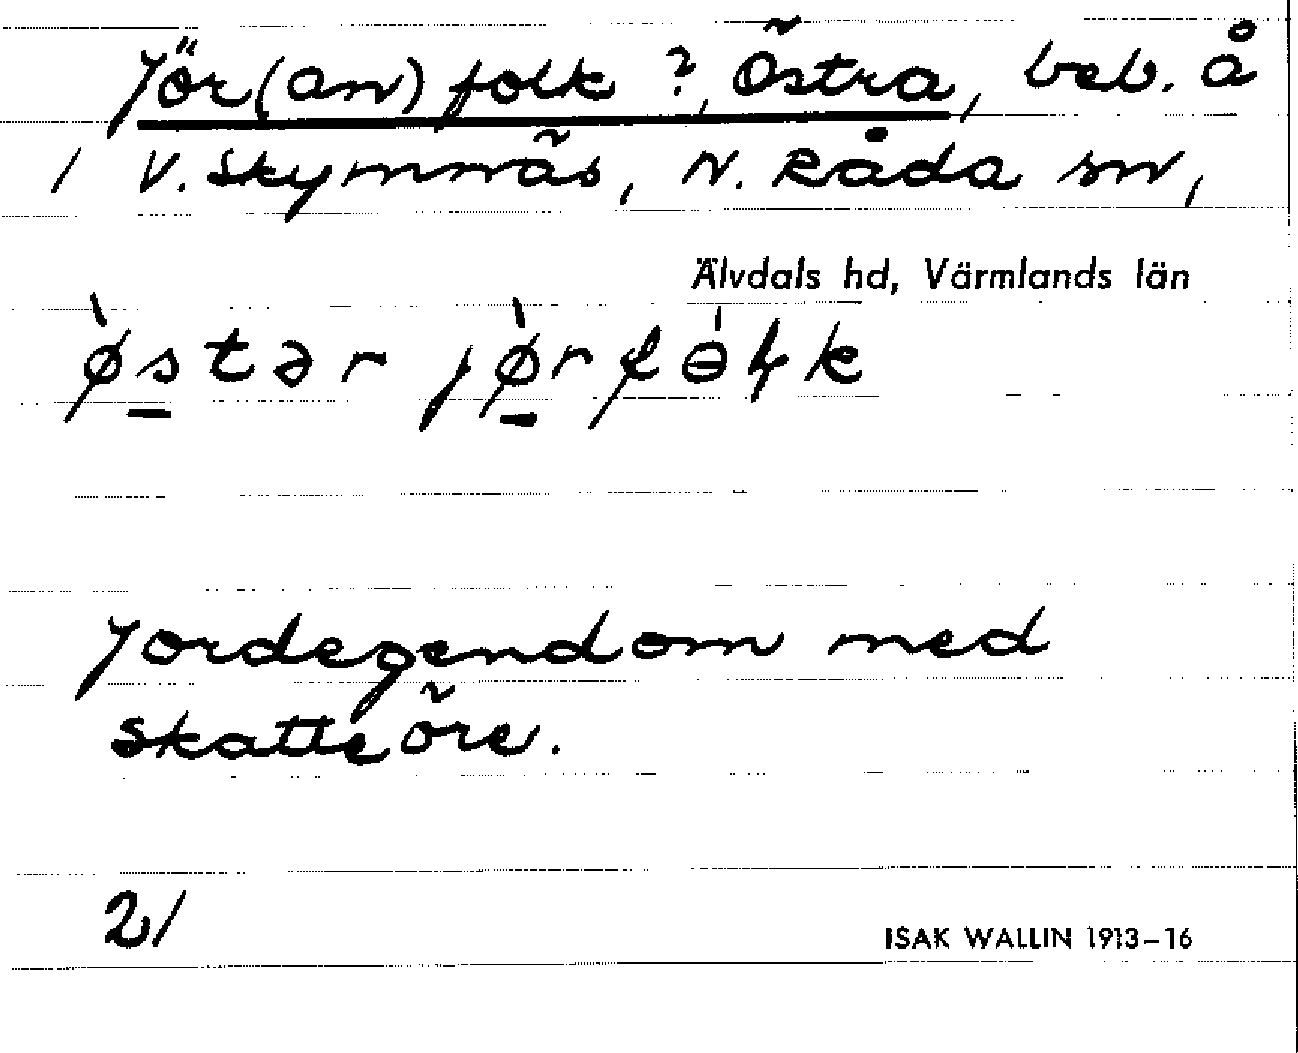 Jör(an)folk ?, Östra, beb. å
1 V. Skymnäs, N. Råda sn,
Älvdals hd, Värmlands län
ø̀stər jø̀rfɵ̀ɽk
Jordegendom med
skatteöre.
21
ISAK WALLIN 1913–16